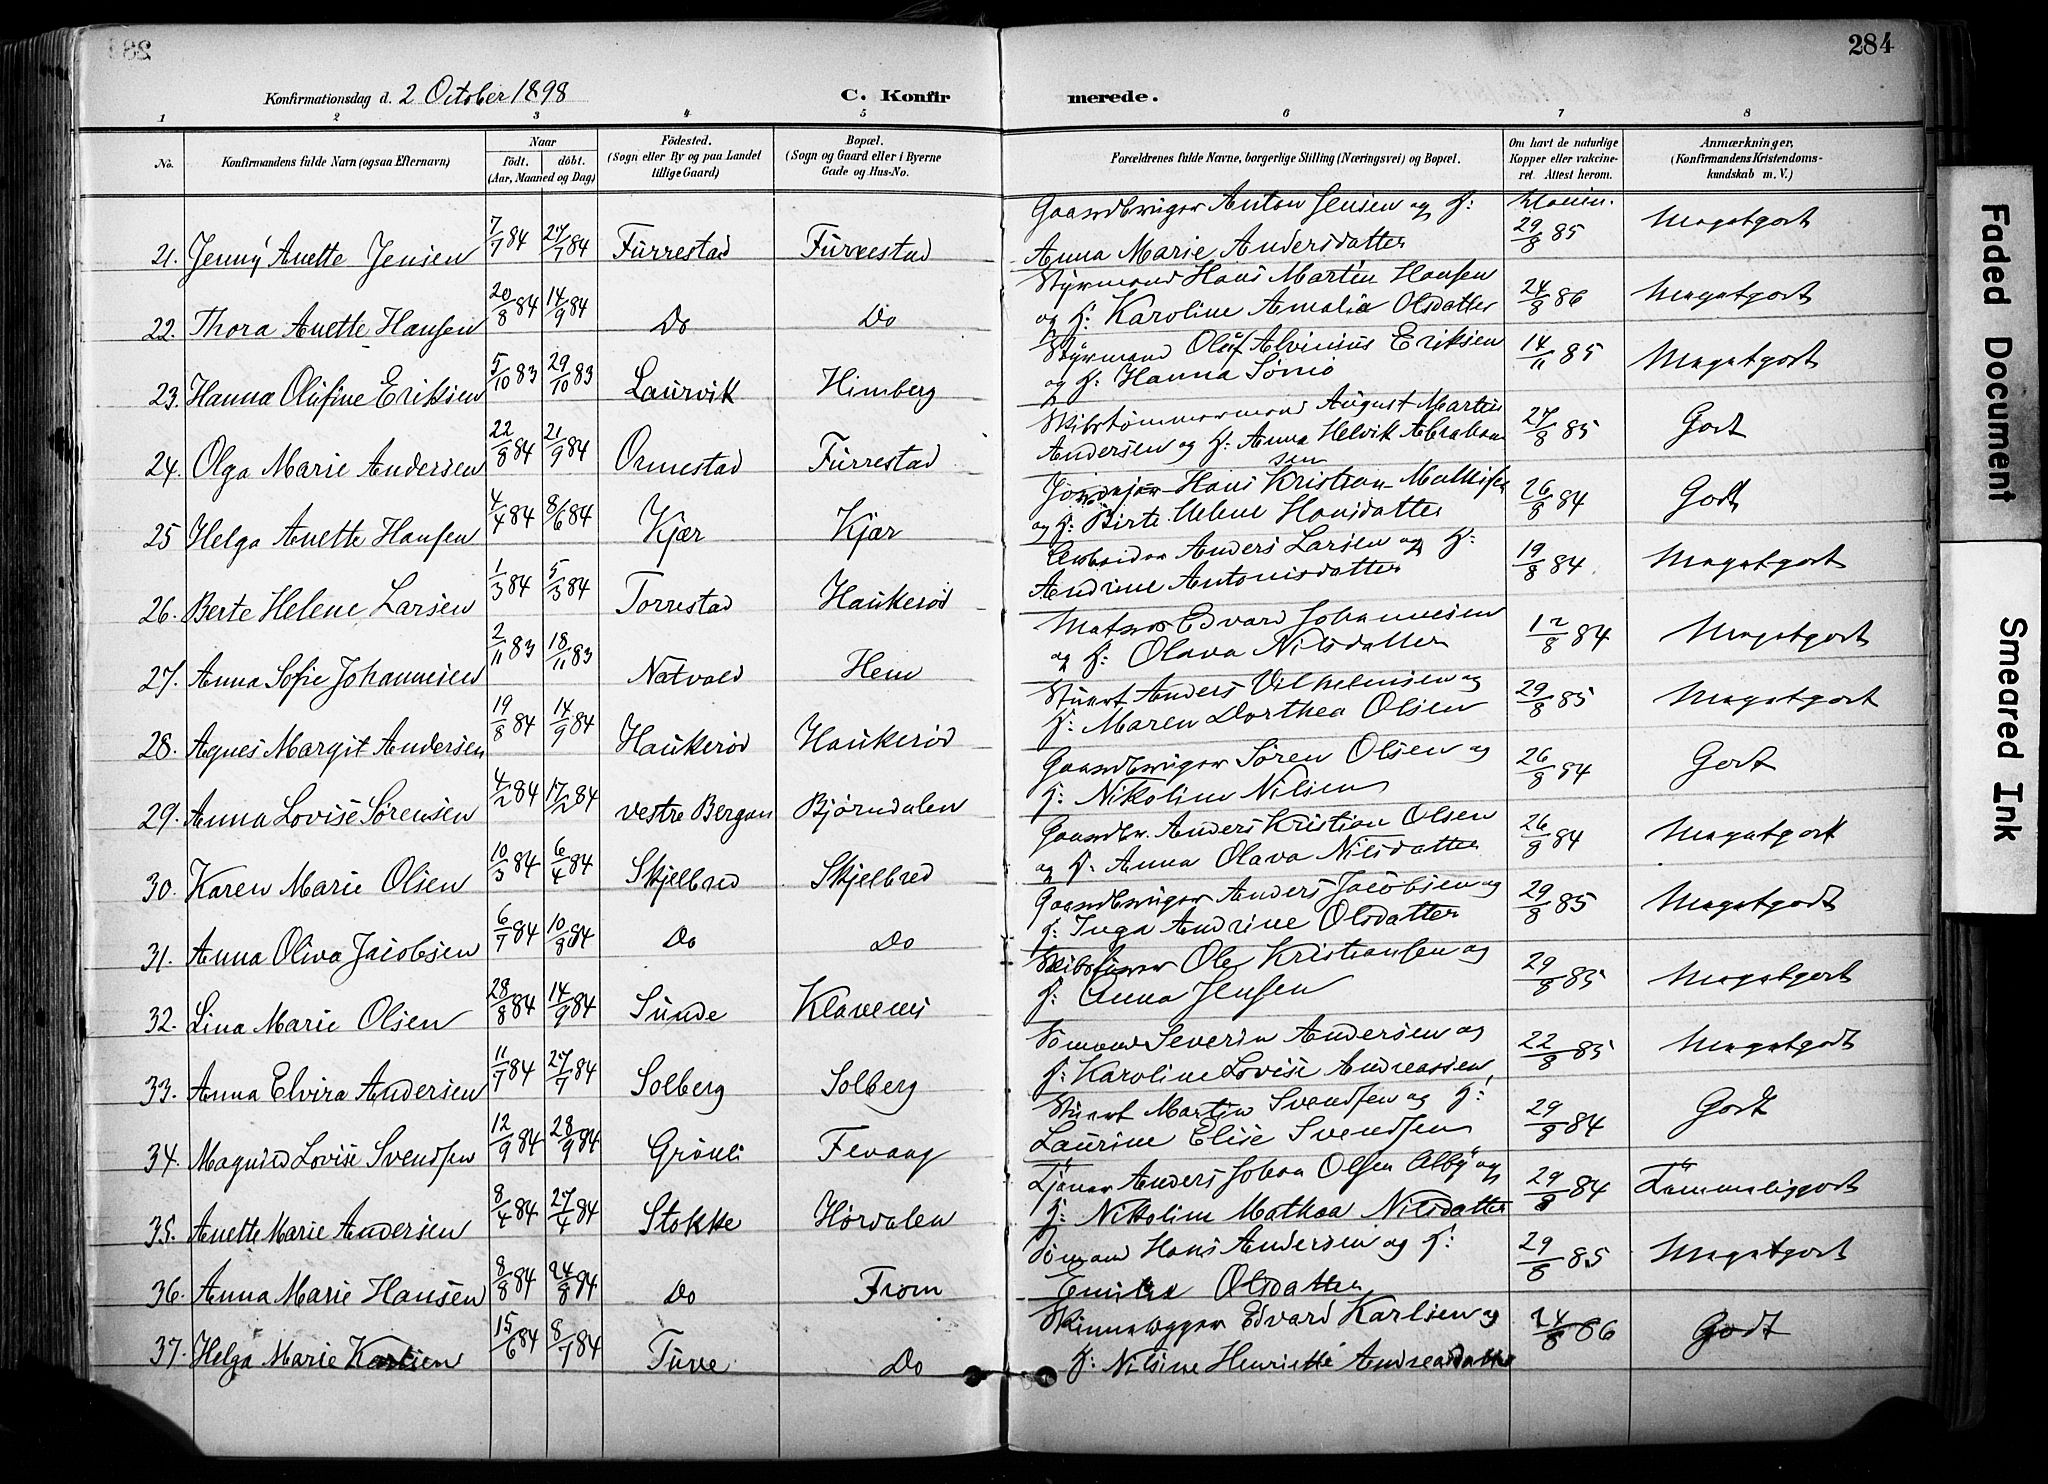 284
Konfirmationsdag d. 2 October 1898
C. Konfirmerede.
1 2 3 4 5 6 7 8
No.
Konfirmandens fulde Navn (ogsaa Efternavn)
Naar
födt. döbt.
(Aar, Maaned og Dag)
Födested.
(Sogn eller By og paa Landet
tillige Gaard)
Bopæl.
(Sogn og Gaard eller i Byerne
Gade og Hus-No.
Forældrenes fulde Navne, borgerlige Stilling (Næringsvei) og Bopæl.
Om havt de naturlige
Kopper eller vakcine-
ret. Attest herom.
Anmærkninger,
(Konfirmandens Kristendoms-
kundskab m. V.)
21. Jenny Anette Jensen 7/7 84 27/7 84 Furrestad Furrestad Gaardbruger Anton Jensen og H: 29/8 85 Megetgodt
Anna Marie Andersdatter
22. Thora Anette Hansen 20/8 84 14/9 84 Do Do Styrmand Hans Martin Hansen 24/8 86 Megetgodt
og H: Karoline Amalia Olsdatter
23. Hanna Olufine Eriksen 5/10 83 29/10 83 Laurvik Himberg Styrmand Oluf Alvinius Eriksen 14/11 85 Megetgodt
og H: Hanna Sønio
24. Olga Marie Andersen 22/8 84 21/9 84 Ormestad Furrestad Skibstømmermand August Martin 27/8 85 Godt
Andersen og H: Anna Helvik Abraham
sen
25 Helga Anette Hansen 4/4 84 8/6 84 Kjær Kjær Jordejer Hans Kristian Mathisen 26/8 84 Godt
og H: Birte Helene Hansdatter
26. Berte Helene Larsen 1/3 84 5/3 84 Torrestad Haukerød Arbeider Anders Larsen og H: 19/8 84 Megetgodt
Andrine Antonisdatter
27. Anna Sofie Johannesen 2/11 83 18/11 83 Natvold Hem Matros Edvard Johannesen 12/8 84 Megetgodt
og H: Olava Nilsdatter
28. Agnes Margit Andersen 19/8 84 14/9 84 Haukerød Haukerød Stuert Anders Vilhelmsen og 29/8 85 Megetgodt
H: Maren Dorthea Olsen
29. Anna Lovise Sørensen 4/2 84 17/2 84 vestre Bergan Bjørndalen Gaardbruger Søren Olsen og 26/8 84 Godt
H: Nikoline Nilsen
30. Karen Marie Olsen 10/3 84 6/4 84 Skjelbred Skjelbred Gaardbr. Anders Kristian Olsen 26/8 84 Megetgodt
og H. Anna Olava Nilsdatter
31. Anna Oliva Jacobsen 6/7 84 10/8 84 Do Do Gaardbruger Anders Jacobsen og 29/8 85 Megetgodt
H: Inga Andrine Olsdatter
32. Lina Marie Olsen 28/8 84 14/9 84 Sunde Klavenes Skibsfører Ole Kristiansen og 29/8 85 Megetgodt
H: Anna Jensen
33. Anna Elvira Andersen 11/7 84 27/7 84 Solberg Solberg Sømand Severin Andersen og 22/8 85 Megetgodt
H: Karoline Lovise Andreassen
34. Magnild Lovise Svendsen 12/9 84 28/9 84 Grønli Fevang Stuert Martin Svendsen og H: 29/8 84 Godt
Laurine Elise Svendsen
35. Anette Marie Andersen 8/4 84 27/4 84 Stokke Hørdalen Tjener Anders Johan Olsen Olby og 29/8 84 Temmeliggodt
H: Nikoline Mathea Nilsdatter
36. Anna Marie Hansen 8/8 84 24/8 84 Do From Sömand Hans Andersen og H: 29/8 85 Megetgodt
Emilie Olsdatter
37. Helga Marie Karlsen 15/6 84 8/7 84 Tuve Do Minnelægger Edvard Karlsen og 24/8 86 Godt
H: Nilsine Henriette Andreasdatter
Faded Document
Smeared Ink